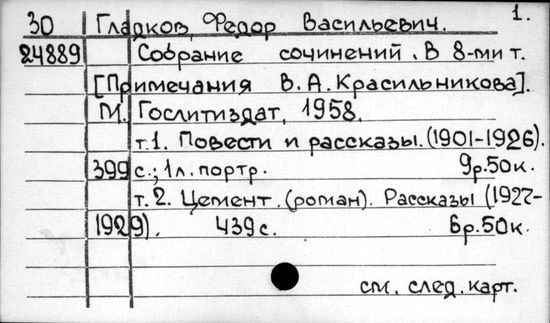 1.
30 Гладков, Федор Васильевич.
24889 Собрание сочинений. В 8-ми т.
[Примечания В.А.Красильникова].
М. Гослитиздат, 1958.
т.1. Повести и рассказы.(1901-1926).
399 с.; 1л. портр. 9р.50к.
т.2. Цемент.(роман). Рассказы (1927-
1929). 439с. 6р.50к.
см. след. карт.